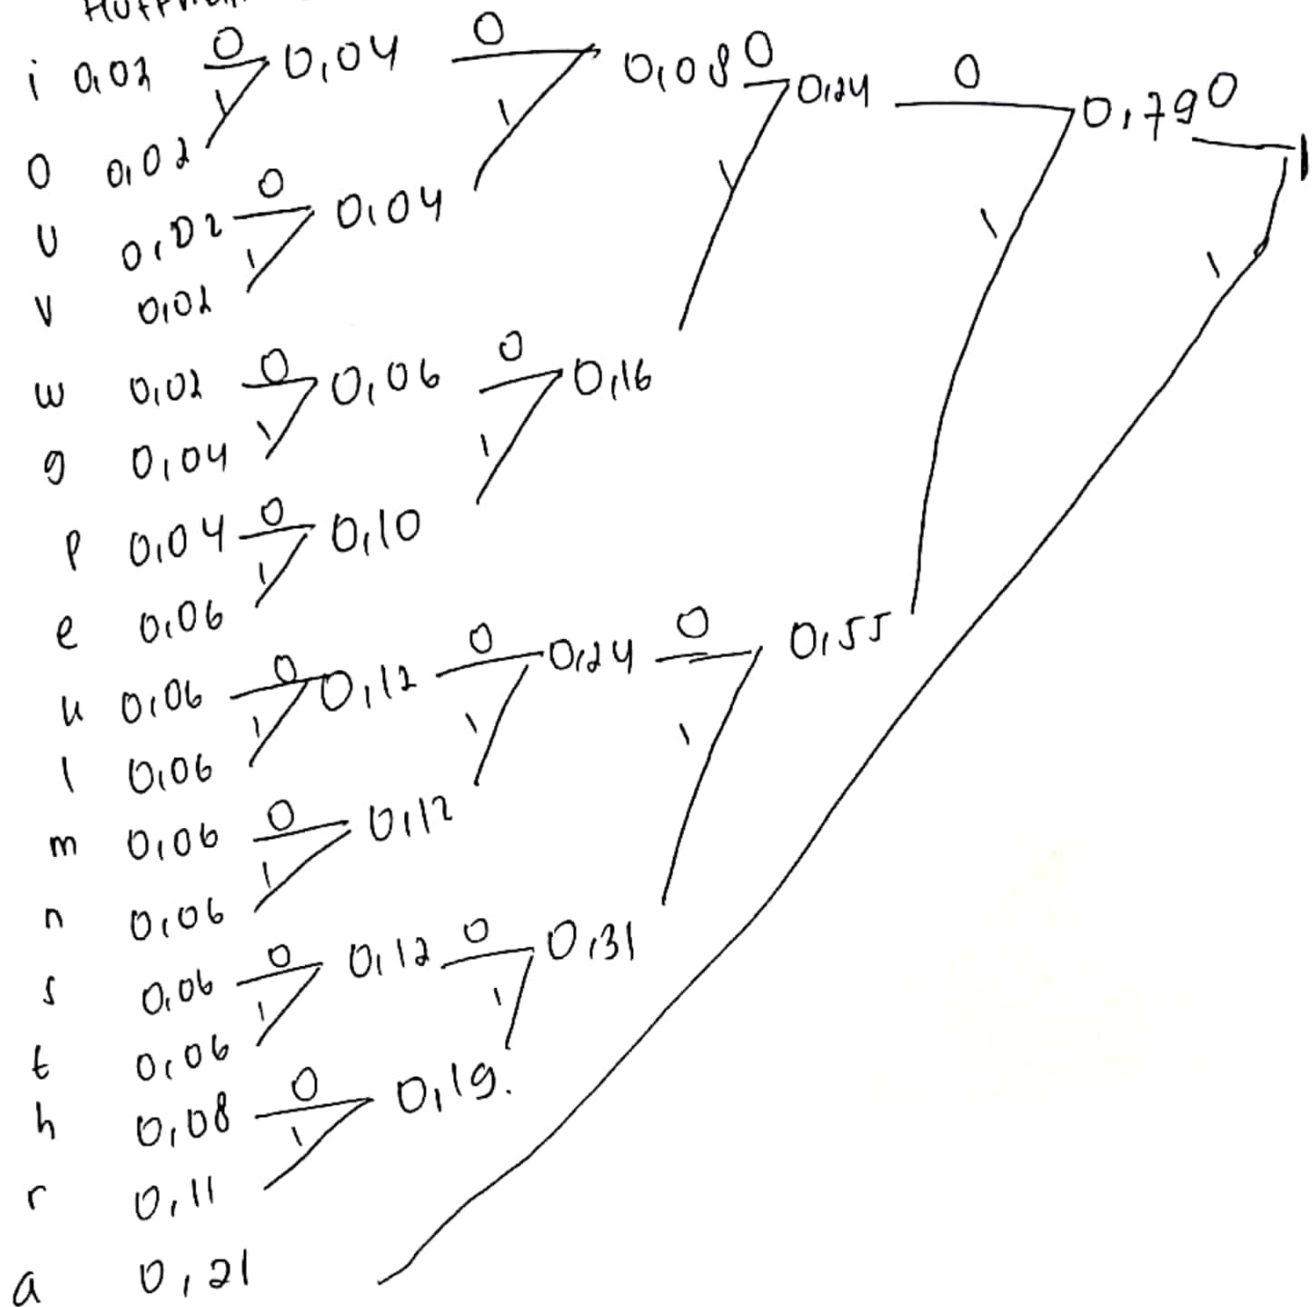 i 0,02 0 0,04 0 0,08 0 0,24 0 0,79 0 1
1 1
o 0,02
u 0,02 0 0,04 1 1
1
v 0,02
w 0,02 0 0,06 0 0,16
g 0,04 1 1
p 0,04 0 0,10
1
e 0,06
u 0,06 0 0,12 0 0,24 0 0,55
1 1 1
l 0,06
m 0,06 0 0,12
1
n 0,06
s 0,06 0 0,12 0 0,31
1 1
t 0,06
h 0,08 0 0,19.
1
r 0,11
a 0,21